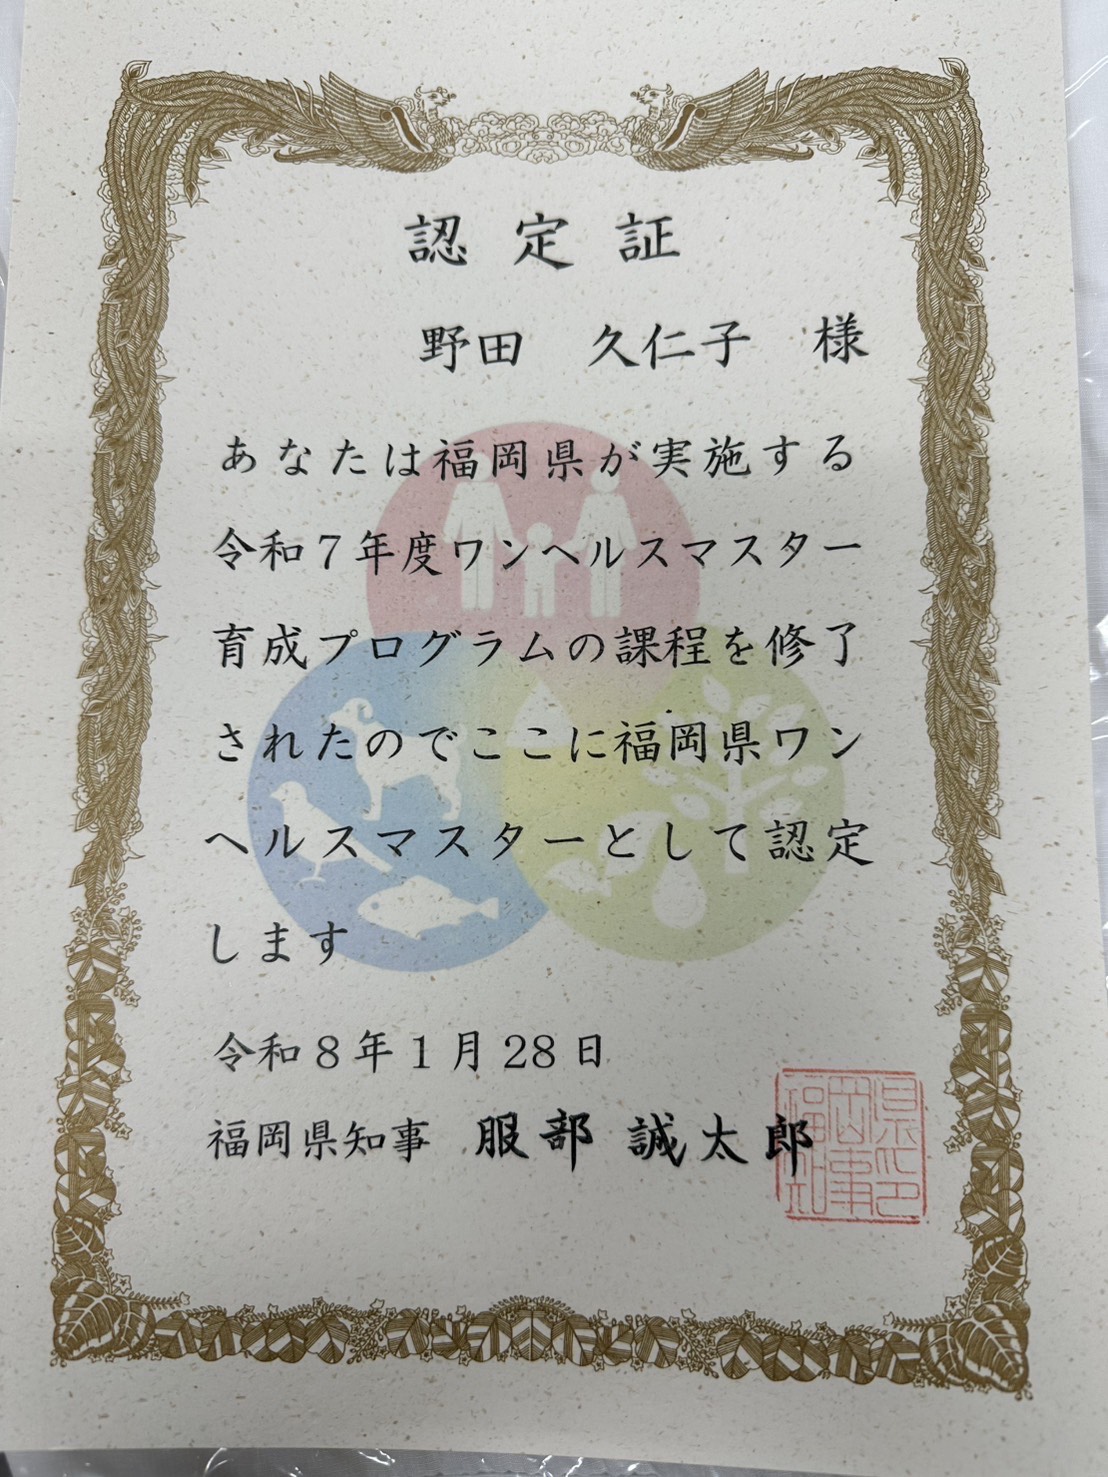 認定証
野田　久仁子　様
あなたは福岡県が実施する
令和７年度ワンヘルスマスター
育成プログラムの課程を修了
されたのでここに福岡県ワン
ヘルスマスターとして認定
します
令和８年１月28日
福岡県知事　服部　誠太郎
福岡県知事印